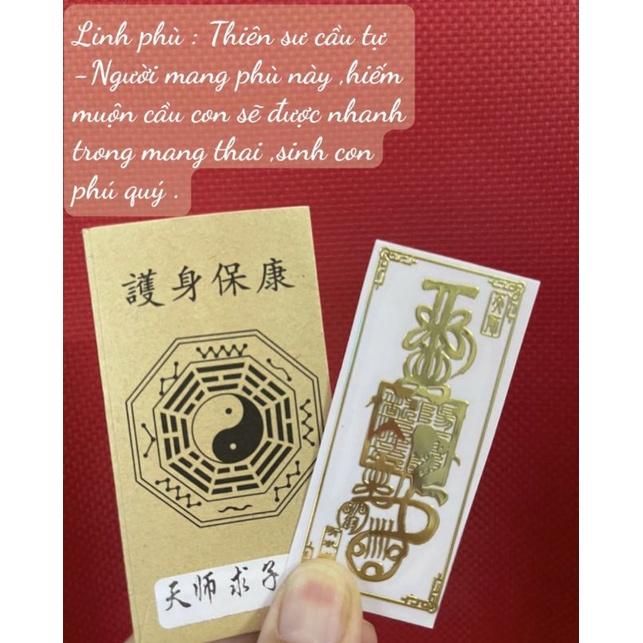 Linh phù : Thiên sư cầu tự
-Người mang phù này ,hiếm
muộn cầu con sẽ được nhanh
trong mang thai ,sinh con
phú quý .
護身保康
天师求子